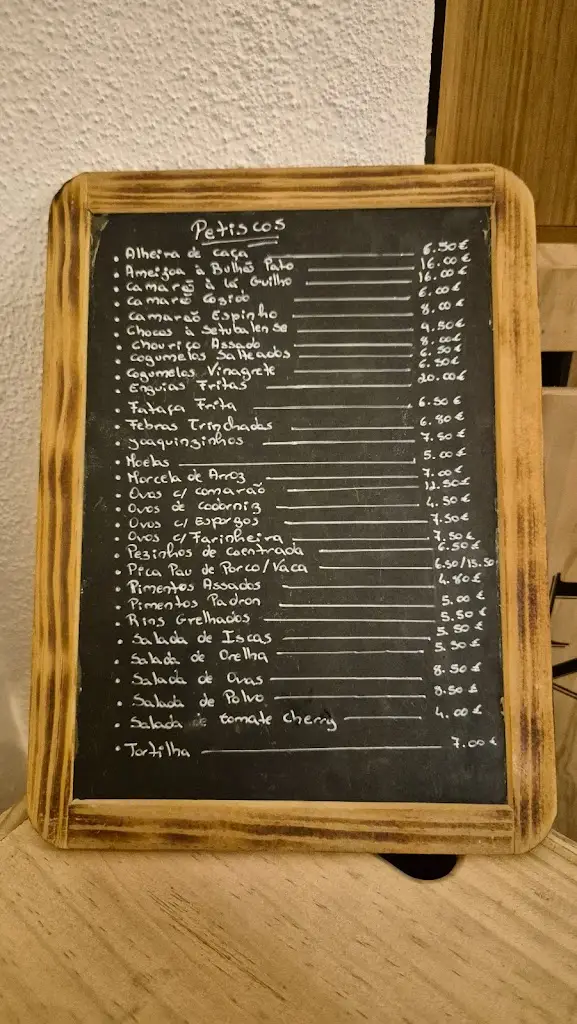 Petiscos
• Alheira de caça 6.50€
• Ameijoa à Bulhão Pato 16.00€
• Camarão à lá Guilho 16.00€
• Camarão Cozido 6.00€
• Camarão Espinho 8.00€
• Chocos à Setubalense 9.50€
• Chouriço Assado 8.00€
• Cogumelos Salteados 6.50€
• Cogumelos Vinagrete 6.50€
• Enguias Fritas 20.00€
• Fataça Frita 6.50€
• Febras Trinchadas 6.80€
• Joaquinzinhos 7.50€
• Moelas 5.00€
• Morcela de Arroz 7.00€
• Ovos c/ camarão 12.50€
• Ovos de codorniz 4.50€
• Ovos c/ Espargos 7.50€
• Ovos c/ Farinheira 7.50€
• Pezinhos de coentrada 6.50€
• Pica Pau de Porco/Vaca 6.50/15.50
• Pimentos Assados 4.80€
• Pimentos Padron 5.00€
• Rins Grelhados 5.50€
• Salada de Iscas 5.50€
• Salada de Orelha 5.50€
• Salada de Ovas 8.50€
• Salada de Polvo 8.50€
• Salada de tomate cherry 4.00€
• Tortilha 7.00€